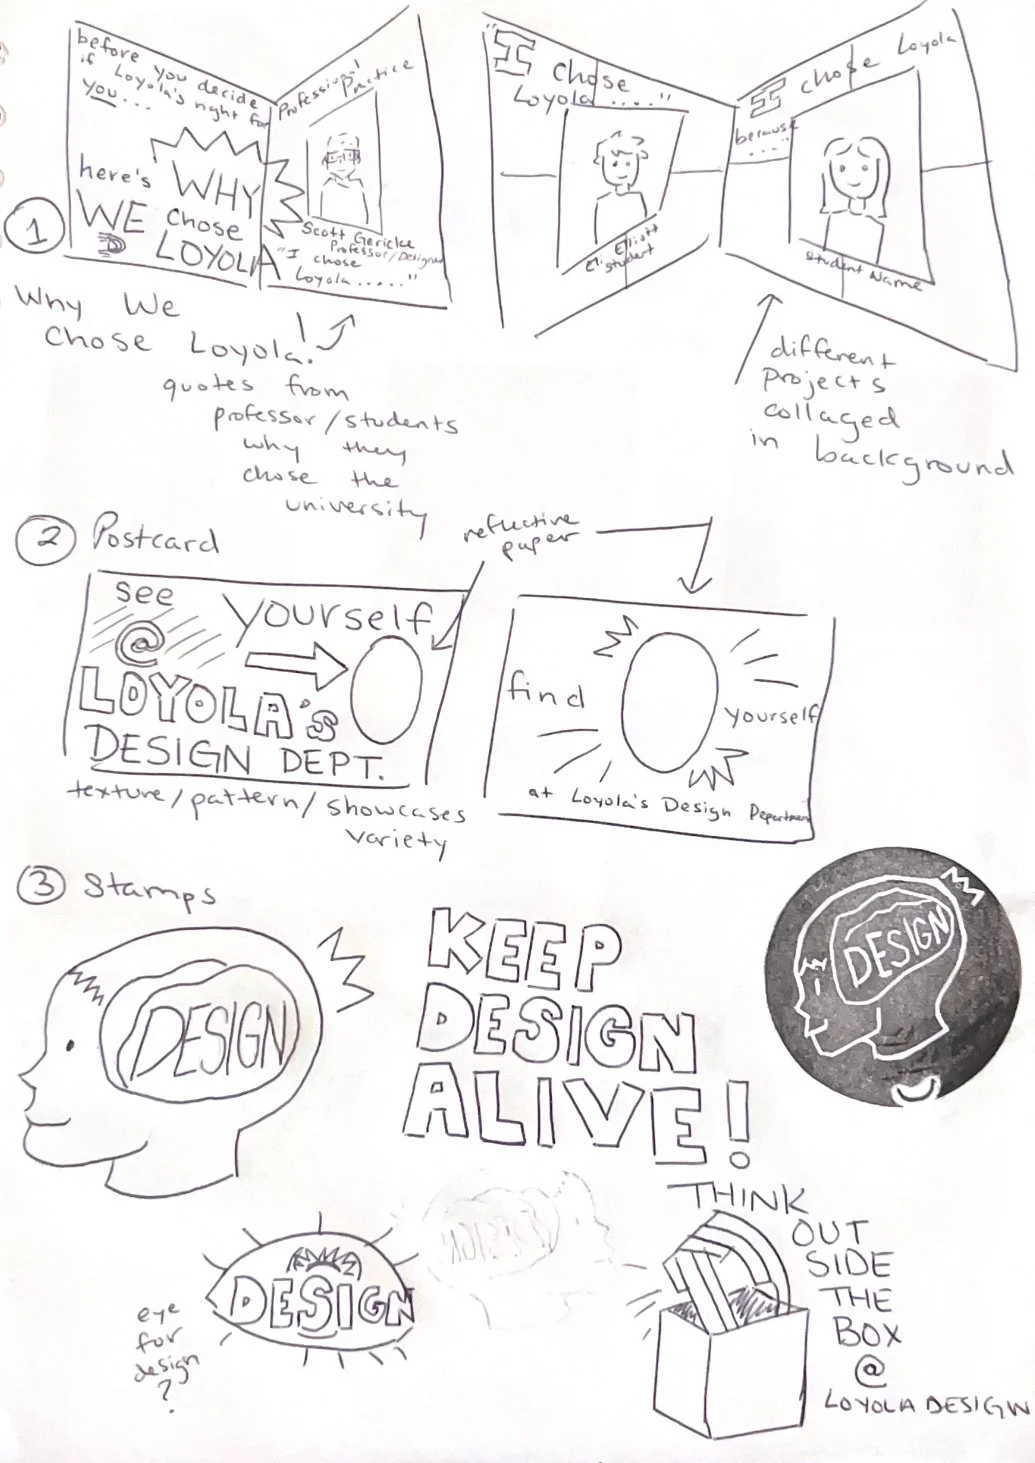 before you decide
if Loyola's right for
you...
here's WHY
WE chose
LOYOLA
Professional
Practice
Scott Gericke
Professor/Designer
"I chose
Loyola....."
"I chose
Loyola....."
Elliott
student
I chose Loyola
because
.....
student Name
1
Why We
chose Loyola!
quotes from
professor/students
why they
chose the
university
different
projects
collaged
in background
2 Postcard
reflective
paper
see
yourself
@
LOYOLA's
DESIGN DEPT.
texture/pattern/showcases
variety
find
yourself
at Loyola's Design Department
3 Stamps
DESIGN
KEEP
DESIGN
ALIVE!
DESIGN
DESIGN
eye
for
design
?
DESIGN
THINK
OUT
SIDE
THE
BOX
@
LOYOLA DESIGN